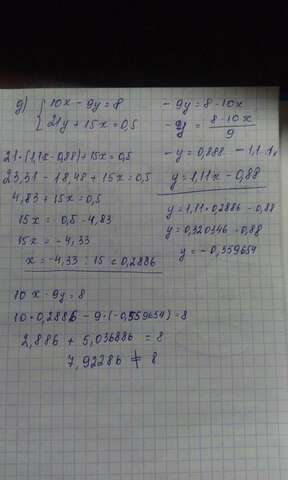 g) { 10x - 9y = 8
21y + 15x = 0,5
- 9y = 8 - 10x
- y = 8 - 10x / 9
- y = 0,888 - 1,1
y = 1,11x - 0,88
21·(1,11x - 0,88) + 15x = 0,5
23,31 - 18,48 + 15x = 0,5
4,83 + 15x = 0,5
15x = 0,5 - 4,83
15x = -4,33
x = -4,33 : 15 = 0,2886
y = 1,11 · 0,2886 - 0,88
y = 0,320346 - 0,88
y = -0,559654
10x - 9y = 8
10 · 0,2886 - 9 · (-0,559654) = 8
2,886 + 5,036886 = 8
7,92286 ≠ 8